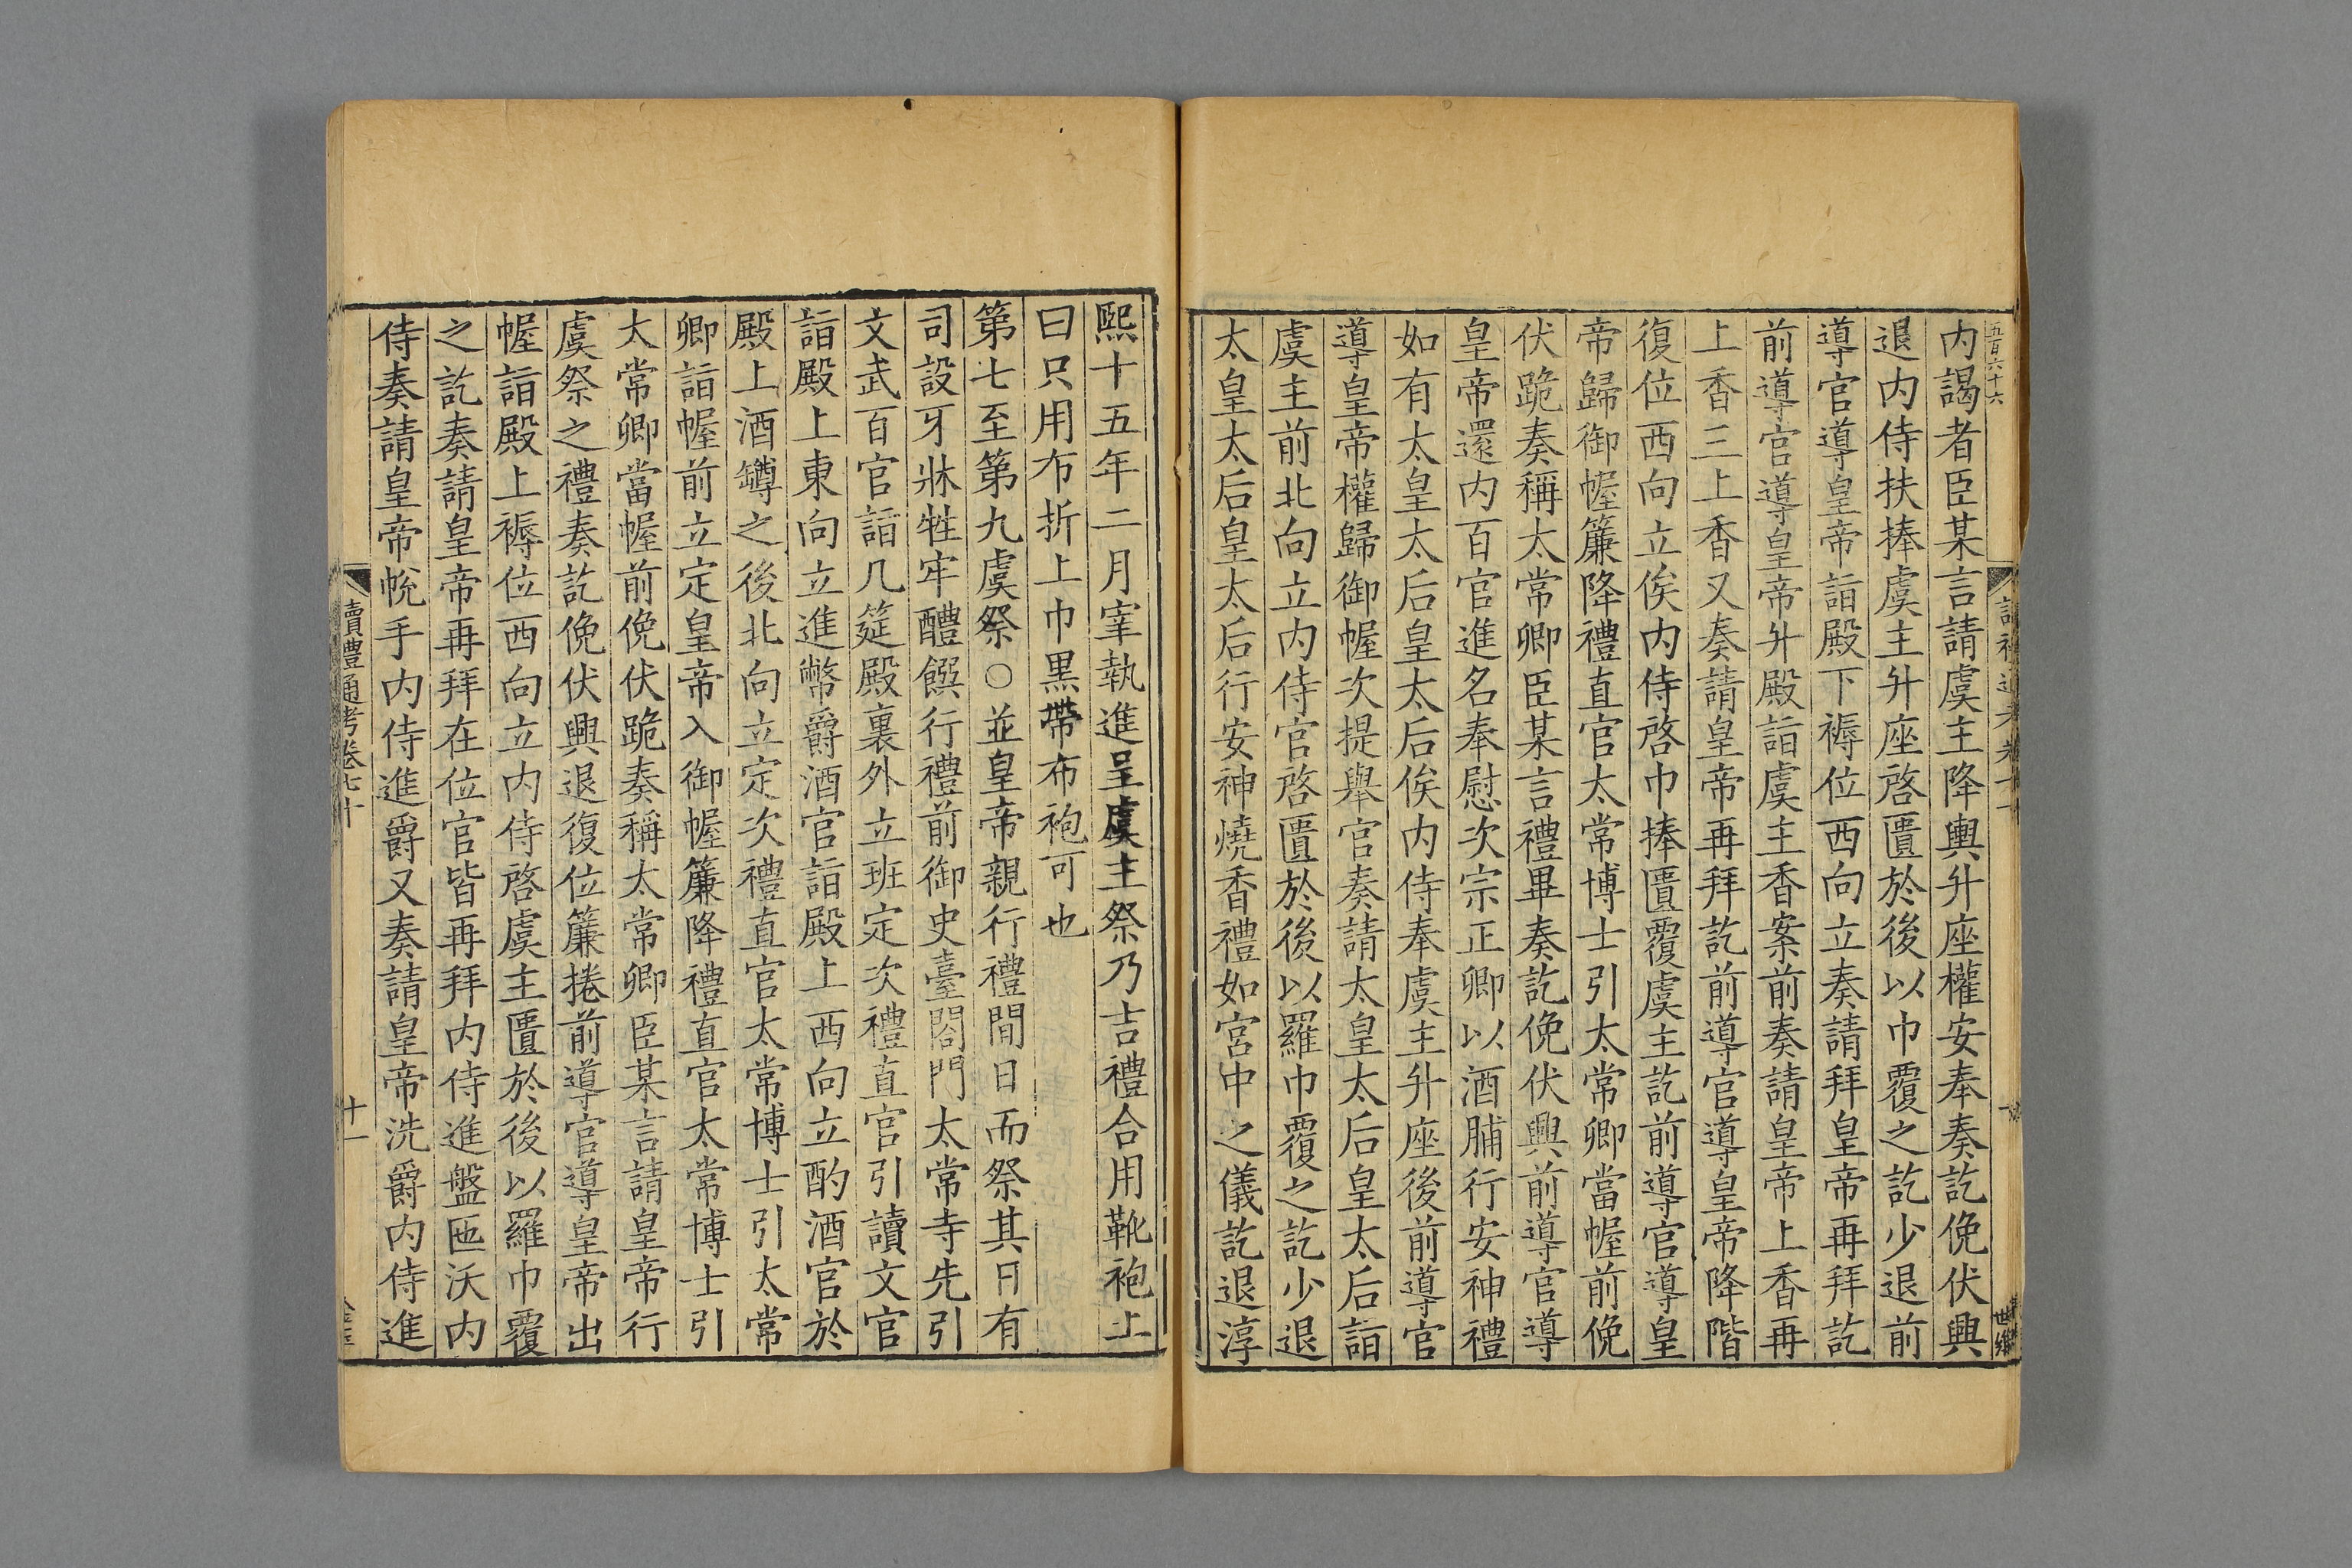 五百六十六
內謁者臣某言請虞主降輿升座權安奉奏訖俛伏興
退內侍扶捧虞主升座啓匱於後以巾覆之訖少退前
導官導皇帝詣殿下褥位西向立奏請拜皇帝再拜訖
前導官導皇帝升殿詣虞主香案前奏請皇帝上香再
上香三上香又奏請皇帝再拜訖前導官導皇帝降階
復位西向立俟內侍啓巾捧匱覆虞主訖前導官導皇
帝歸御幄簾降禮直官太常博士引太常卿當幄前俛
伏跪奏稱太常卿臣某言禮畢奏訖俛伏興前導官導
皇帝還內百官進名奉慰次宗正卿以酒脯行安神禮
如有太皇太后皇太后俟內侍奉虞主升座後前導官
導皇帝權歸御幄次提舉官奏請太皇太后皇太后詣
虞主前北向立內侍官啓匱於後以羅巾覆之訖少退
太皇太后皇太后行安神燒香禮如宮中之儀訖退淳
熙十五年二月宰執進呈虞主祭乃吉禮合用靴袍上
曰只用布折上巾黑帶布袍可也
第七至第九虞祭○並皇帝親行禮間日而祭其日有
司設牙牀牲牢醴饌行禮前御史臺閤門太常寺先引
文武百官詣几筵殿裏外立班定次禮直官引讀文官
詣殿上東向立進幣爵酒官詣殿上西向立酌酒官於
殿上酒罇之後北向立定次禮直官太常博士引太常
卿詣幄前立定皇帝入御幄簾降禮直官太常博士引
太常卿當幄前俛伏跪奏稱太常卿臣某言請皇帝行
虞祭之禮奏訖俛伏興退復位簾捲前導官導皇帝出
幄詣殿上褥位西向立內侍啓虞主匱於後以羅巾覆
之訖奏請皇帝再拜在位官皆再拜內侍進盤匜沃內
侍奏請皇帝帨手內侍進爵又奏請皇帝洗爵內侍進
讀禮通考卷七十
十一